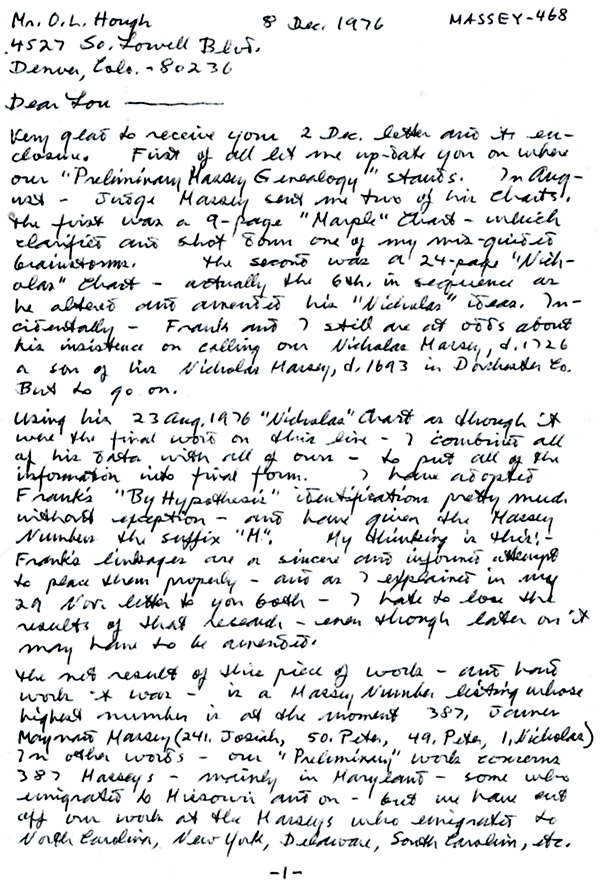 Mr. O.L. Hough 8 Dec. 1976 MASSEY-468
4527 So. Lowell Blvd.
Denver, Colo. - 80236
Dear Lou ———
Very glad to receive your 2 Dec. letter and its en-
closure. First of all let me up-date you on where
our "Preliminary Massey Genealogy" stands. In Aug-
ust - Judge Massey sent me two of his charts.
The first was a 9-page "Marple" Chart - which
clarified and shot down one of my mis-guided
brainstorms. The second was a 24-page "Nich-
olas" Chart - actually the 6th. in sequence as
he altered and amended his "Nicholas" ideas. In-
cidentally - Frank and I still are at odds about
his insistence on calling our Nicholas Massey, d. 1726
a son of his Nicholas Massey, d. 1693 in Dorchester Co.
But to go on.
Using his 23 Aug. 1976 "Nicholas" Chart as though it
were the final word on this line - I combined all
of his data with all of ours - to put all of the
information into final form. I have adopted
Frank's "By Hypothesis" identifications pretty much
without exception - and have given the Massey
Numbers the suffix "H". My thinking is this:-
Frank's linkages are a sincere and informed attempt
to place them properly - and as I explained in my
29 Nov. letter to you both - I hate to lose the
results of that research - even though later on it
may have to be amended.
The net result of this piece of work - and hard
work it was - is a Massey Number listing whose
highest number is at the moment 387,
Maynard Massey (241. Josiah, 50. Peter, 49. Peter, 1. Nicholas)
In other words - our "Preliminary" work concerns
387 Masseys - mainly in Maryland - some who
emigrated to Missouri and on - but we have cut
off our work at the Masseys who emigrated to
North Carolina, New York, Delaware, South Carolina, etc.
-1-